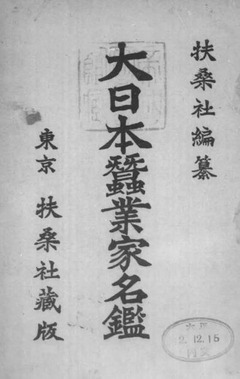 扶桑社編纂
大日本蠶業家名鑑
東京 扶桑社藏版
2.12.15